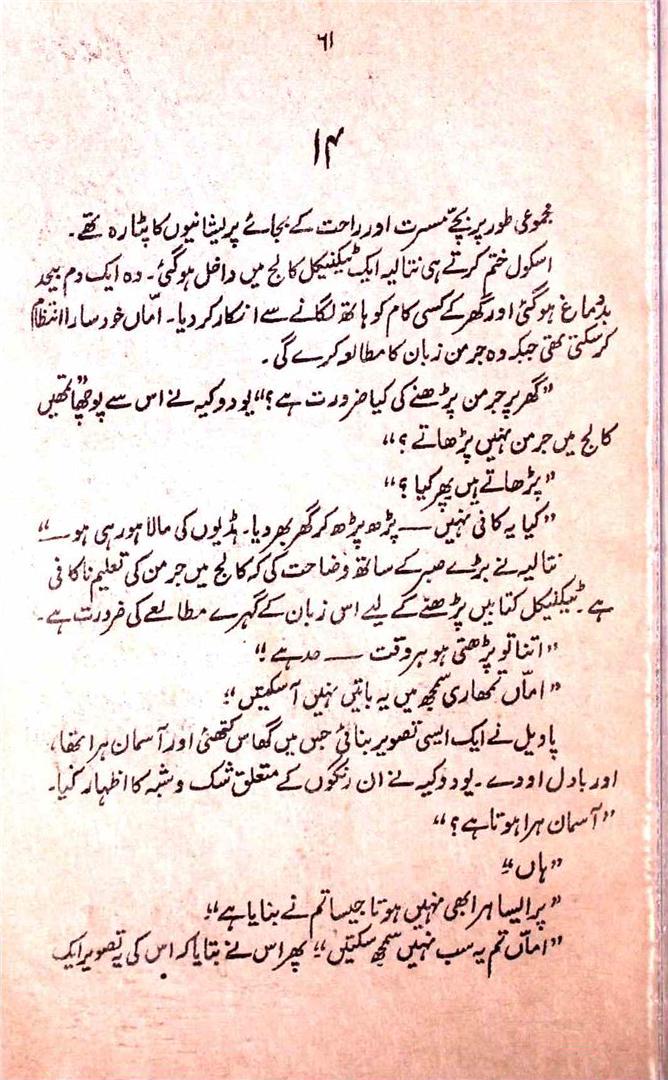 ۶۱
۱۴
مجموعی طور پر بچّے مسرت اور راحت کے بجائے پریشانیوں کا پٹارہ تھے۔
اسکول ختم کرتے ہی نتالیہ ایک ٹیکنیکل کالج میں داخل ہوگئی۔ وہ ایک دم بیحد
بددماغ ہوگئی اور گھر کے کسی کام کو ہاتھ لگانے سے انکار کر دیا۔ امّاں خود سارا انتظام
کرسکتی تھی جبکہ وہ جرمن زبان کا مطالعہ کرے گی۔
”گھر پر جرمن پڑھنے کی کیا ضرورت ہے؟“ یودوکیہ نے اس سے پوچھا ”تمھیں
کالج میں جرمن نہیں پڑھاتے؟“
”پڑھاتے ہیں پھر کیا؟“
”کیا یہ کافی نہیں — پڑھ پڑھ کر گھر بھر دیا۔ ہڈیوں کی مالا ہو رہی ہو —“
نتالیہ نے بڑے صبر کے ساتھ وضاحت کی کہ کالج میں جرمن کی تعلیم ناکافی
ہے۔ ٹیکنیکل کتابیں پڑھنے کے لیے اس زبان کے گہرے مطالعے کی ضرورت ہے۔
”اتنا تو پڑھتی ہو ہر وقت — حد ہے!“
”امّاں تمھاری سمجھ میں یہ باتیں نہیں آسکتیں“
پاویل نے ایک ایسی تصویر بنائی جس میں گھاس کتھئی اور آسمان ہرا تھا،
اور بادل اودے۔ یودوکیہ نے ان رنگوں کے متعلق شک و شبہ کا اظہار کیا۔
”آسمان ہرا ہوتا ہے؟“
”ہاں“
”پر ایسا ہرا بھی نہیں ہوتا جیسا تم نے بنایا ہے“
”امّاں تم یہ سب نہیں سمجھ سکتیں“ پھر اس نے بتایا کہ اس کی یہ تصویر ایک